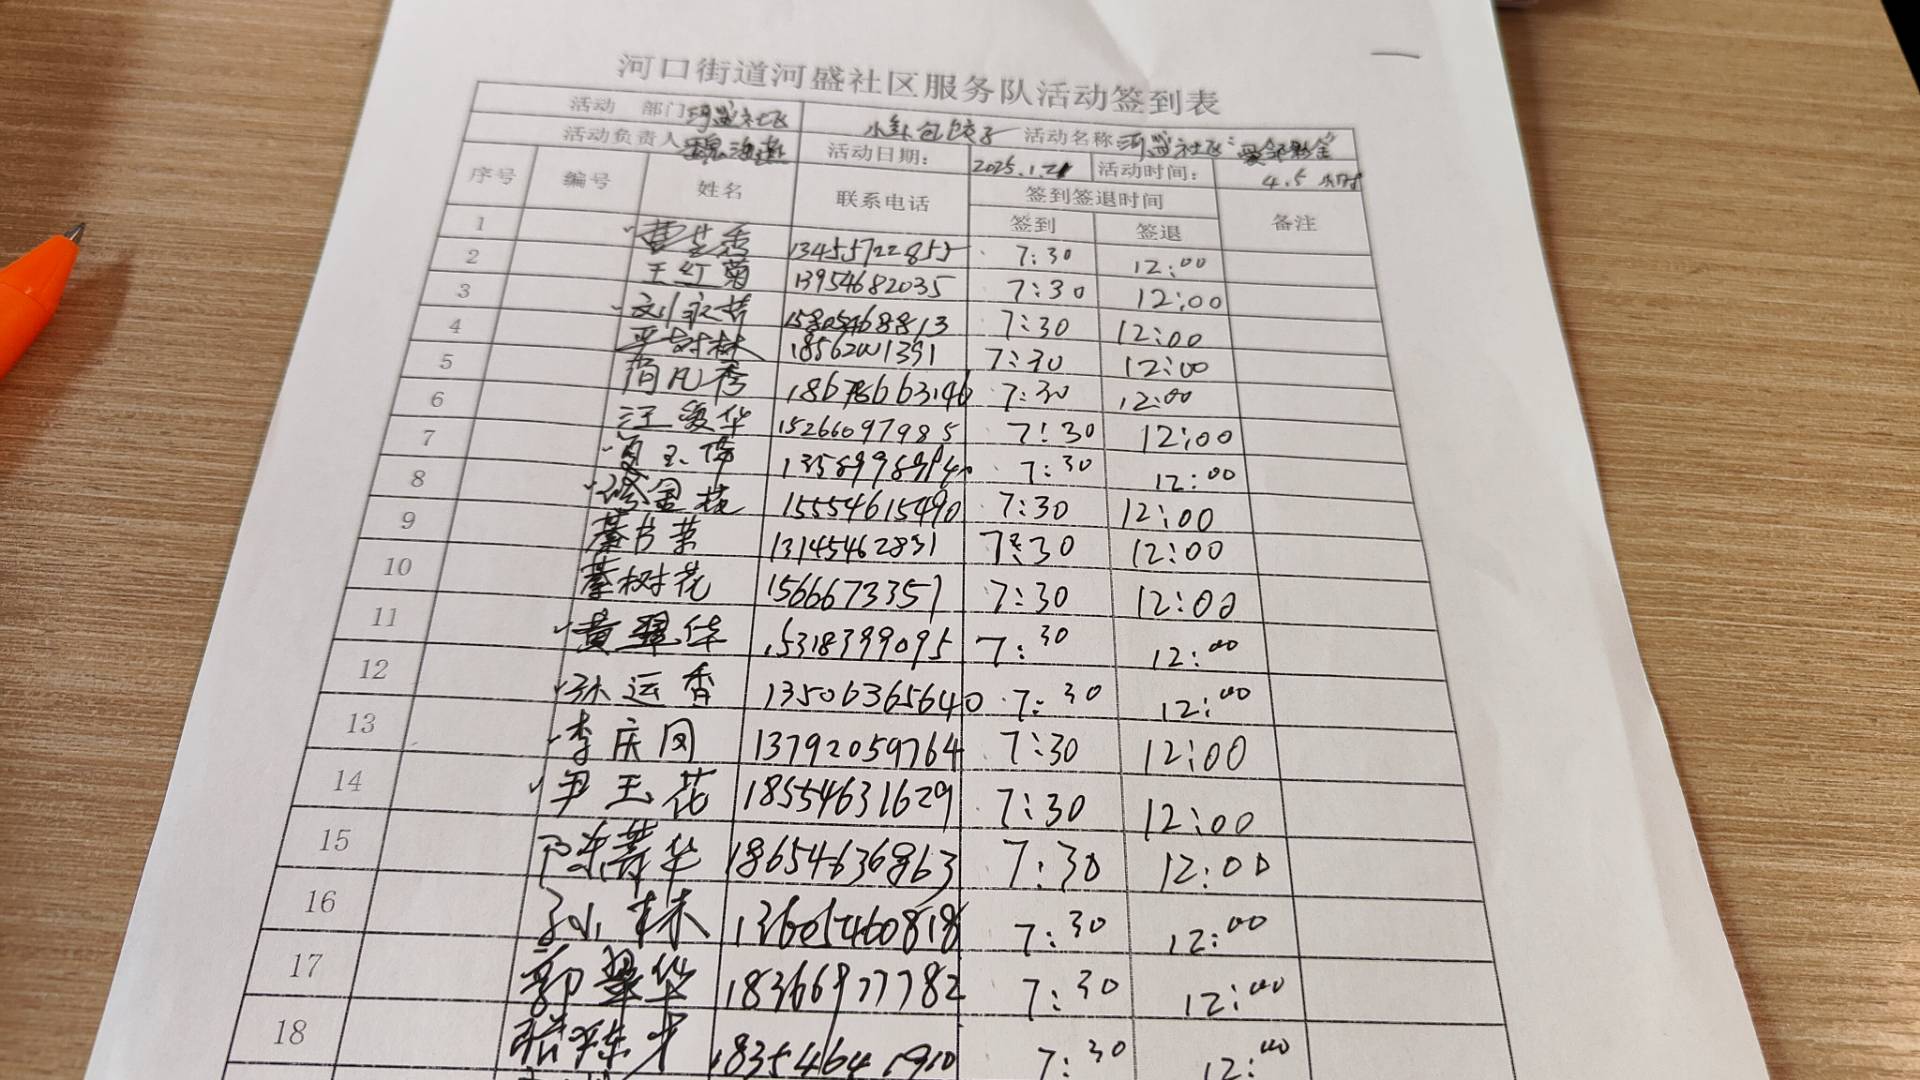 河口街道河盛社区服务队活动签到表
活动 部门 河盛社区 小红包饺子 活动名称 河盛社区"爱邻聚金"
活动负责人 魏海燕 活动日期: 2025.1.21 活动时间: 4.5小时
序号 编号 姓名 联系电话 签到签退时间 备注
签到 签退
1 13455722855 7:30 12:00
2 王红菊 13954682035 7:30 12:00
3 15805468813 7:30 12:00
4 7:30 12:00
5 7:30 12:00
6 汪爱华 15266097985 7:30 12:00
7 7:30 12:00
8 徐金花 15554615490 7:30 12:00
9 綦书荣 13145462831 7:30 12:00
10 綦树花 1566673357 7:30 12:00
11 黄翠华 15318399095 7:30 12:00
12 孙运香 13506365640 7:30 12:00
13 李庆凤 13792059764 7:30 12:00
14 尹玉花 18554631629 7:30 12:00
15 陈菁华 18654636863 7:30 12:00
16 孙林 13605460818 7:30 12:00
17 郭翠华 18366977782 7:30 12:00
18 7:30 12:00